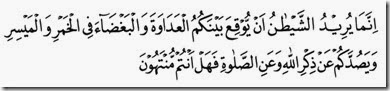 اِنَّمَا يُرِيْدُ الشَّيْطٰنُ اَنْ يُّوْقِعَ بَيْنَكُمُ الْعَدَاوَةَ وَالْبَغْضَاۤءَ فِى الْخَمْرِ وَالْمَيْسِرِ
وَيَصُدَّكُمْ عَنْ ذِكْرِ اللهِ وَعَنِ الصَّلٰوةِ فَهَلْ اَنْتُمْ مُّنْتَهُوْنَ